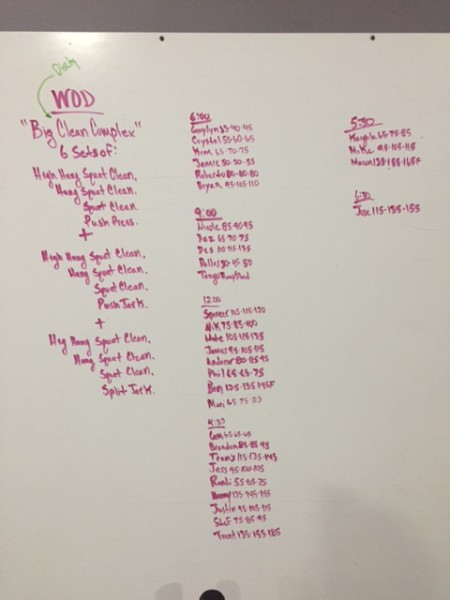 Dirty
WOD
"Big Clean Complex"
6 Sets of:
High Hang Squat Clean,
Hang Squat Clean,
Squat Clean,
Push Press.
+
High Hang Squat Clean,
Hang Squat Clean,
Squat Clean,
Push Jerk.
+
Hang Squat Clean,
Squat Clean,
Split Jerk.
6:00
Crystal 55-60-65
Kim 65-70-75
Roberto 80-80-80
Bryan 95-105-110
9:00
Nicole 85-90-95
Dez 65-70-75
Des 110-115-135
Dallas
12:00
Spencer
Nik 75-85-100
James 95-105-115
Andrew 80-85-95
Phil 65-65-75
Ben 125-135-145F
Muri 65-75-80
4:30
Cam
Brandon 85-85-95
Travis 115-135-145
Jess 95-100-105
55-65-75
135-145-155
Justin 95-105-115
75-85-95
Trent 135-155-185
5:30
65-75-85
Mike 95-105-115
Mason 135-155-165F
6:30
Jose 115-135-155